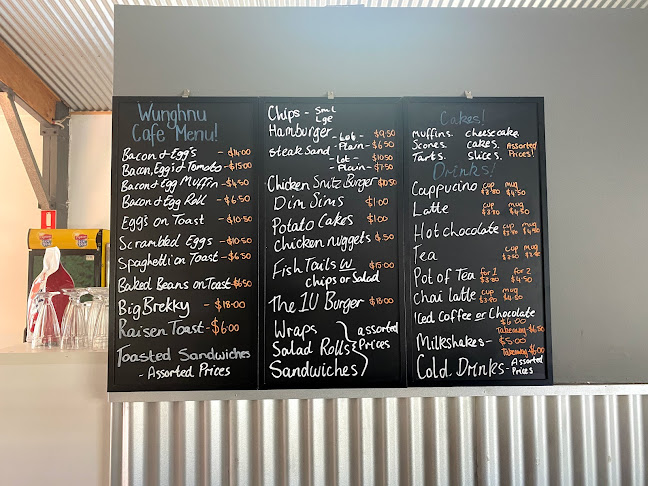 Wunghnu
Cafe Menu!
Bacon & Egg's - $14.00
Bacon, Egg's & Tomato - $15.00
Bacon & Egg Muffin - $4.50
Bacon & Egg Roll - $6.50
Egg's on Toast - $10.50
Scrambled Eggs - $10.50
Spaghetti on Toast - $6.50
Baked Beans on Toast $6.50
Big Brekky - $18.00
Raisen Toast - $6.00
Toasted Sandwiches
- Assorted Prices
Chips - Sml
Lge
Hamburger - Lot - $9.50
- Plain - $6.50
Steak Sand - Lot - $10.50
- Plain - $7.50
Chicken Snitz Burger $10.50
Dim Sims $1.00
Potato Cakes $1.00
chicken nuggets $.50
Fish Tails w $15.00
chips or Salad
The IU Burger $18.00
Wraps
Salad Rolls
Sandwiches
assorted
Prices
Cakes!
Muffins. cheesecake.
Scones. cakes.
Tarts. slices.
Assorted
Prices!
Drinks!
Cappucino cup mug
$3.80 $4.50
Latte cup mug
$3.80 $4.50
Hot chocolate cup mug
$3.80 $4.50
Tea cup mug
Pot of Tea for 1 for 2
$3.80 $4.50
chai latte cup mug
$3.80
Iced Coffee or Chocolate
$6.00
Takeaway - $6.50
Milkshakes - $5.00
Takeaway
Cold Drinks - Assorted
Prices